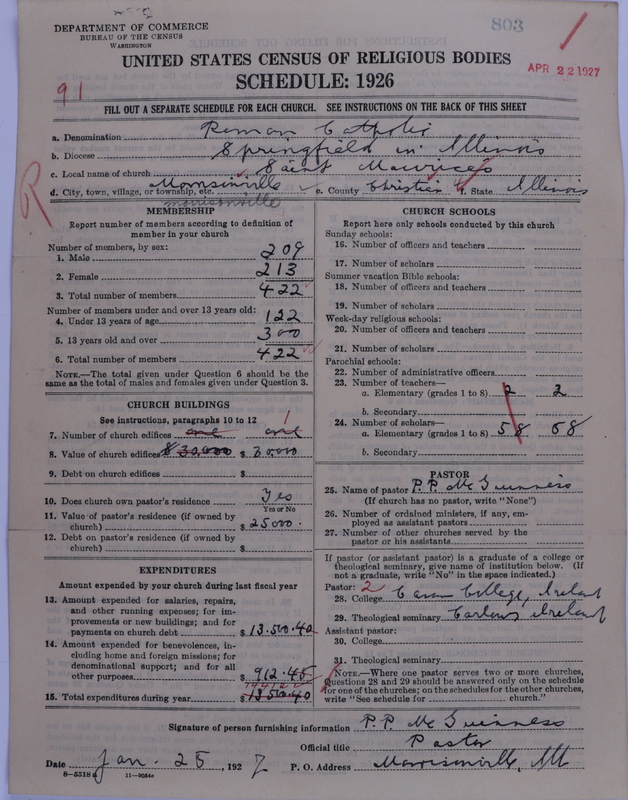 803
DEPARTMENT OF COMMERCE
BUREAU OF THE CENSUS
WASHINGTON
APR 22 1927
UNITED STATES CENSUS OF RELIGIOUS BODIES
SCHEDULE: 1926
91
FILL OUT A SEPARATE SCHEDULE FOR EACH CHURCH. SEE INSTRUCTIONS ON THE BACK OF THIS SHEET
a. Denomination Roman Catholic
b. Diocese Springfield in Illinois
c. Local name of church Saint Maurices
d. City, town, village, or township, etc. Morrisonville e. County Christian f. State Illinois
Morrisonville
R
MEMBERSHIP
Report number of members according to definition of
member in your church
Number of members, by sex:
1. Male 209
2. Female 213
3. Total number of members 422
Number of members under and over 13 years old:
4. Under 13 years of age 122
5. 13 years old and over 300
6. Total number of members 422
NOTE.—The total given under Question 6 should be the
same as the total of males and females given under Question 3.
CHURCH BUILDINGS
See instructions, paragraphs 10 to 12
7. Number of church edifices one one 1
8. Value of church edifices $30,000 $ 30000
9. Debt on church edifices $
10. Does church own pastor's residence Yes
Yes or No
11. Value of pastor's residence (if owned by
church) $ 25000.
12. Debt on pastor's residence (if owned by
church) $
EXPENDITURES
Amount expended by your church during last fiscal year
13. Amount expended for salaries, repairs,
and other running expenses; for im-
provements or new buildings; and for
payments on church debt $ 13.500.40
14. Amount expended for benevolences, in-
cluding home and foreign missions; for
denominational support; and for all
other purposes $ 912.45
15. Total expenditures during year $ 13500.40
CHURCH SCHOOLS
Report here only schools conducted by this church
Sunday schools:
16. Number of officers and teachers
17. Number of scholars
Summer vacation Bible schools:
18. Number of officers and teachers
19. Number of scholars
Week-day religious schools:
20. Number of officers and teachers
21. Number of scholars
Parochial schools:
22. Number of administrative officers
23. Number of teachers—
a. Elementary (grades 1 to 8) 2 2
b. Secondary
24. Number of scholars—
a. Elementary (grades 1 to 8) 58 58
b. Secondary
PASTOR
25. Name of pastor P.P. McGuinness
(If church has no pastor, write "None")
26. Number of ordained ministers, if any, em-
ployed as assistant pastors
27. Number of other churches served by the
pastor or his assistants
If pastor (or assistant pastor) is a graduate of a college or
theological seminary, give name of institution below. (If
not a graduate, write "No" in the space indicated.)
Pastor: 2
28. College Cavan College, Ireland
29. Theological seminary Carlow Ireland
Assistant pastor:
30. College
31. Theological seminary
NOTE.—Where one pastor serves two or more churches,
Questions 28 and 29 should be answered only on the schedule
for one of the churches; on the schedules for the other churches,
write "See schedule for church."
Signature of person furnishing information P.P. McGuinness
Official title Pastor
Date Jan. 25, 1927 P. O. Address Morrisonville, Ill
8—5518 a 11—9054c